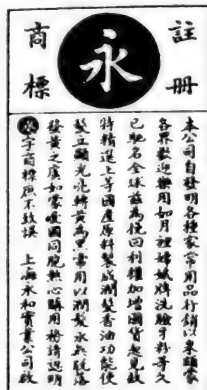 註冊
永
商標
本公司自發明各種家常用品行銷以來頗蒙
各界歡迎樂用如月裡嫦娥牌洗臉牙粉等久
已馳名全球茲為挽回利權加增國貨起見故
特精選上等國產原料製成潤髮香油功能使
髮立顯光轉黃為黑常用以潤髮永無脫落
發黃之虞如蒙愛國同胞熱心購用務請明
永字商標庶不致誤 上海永和實業公司啟